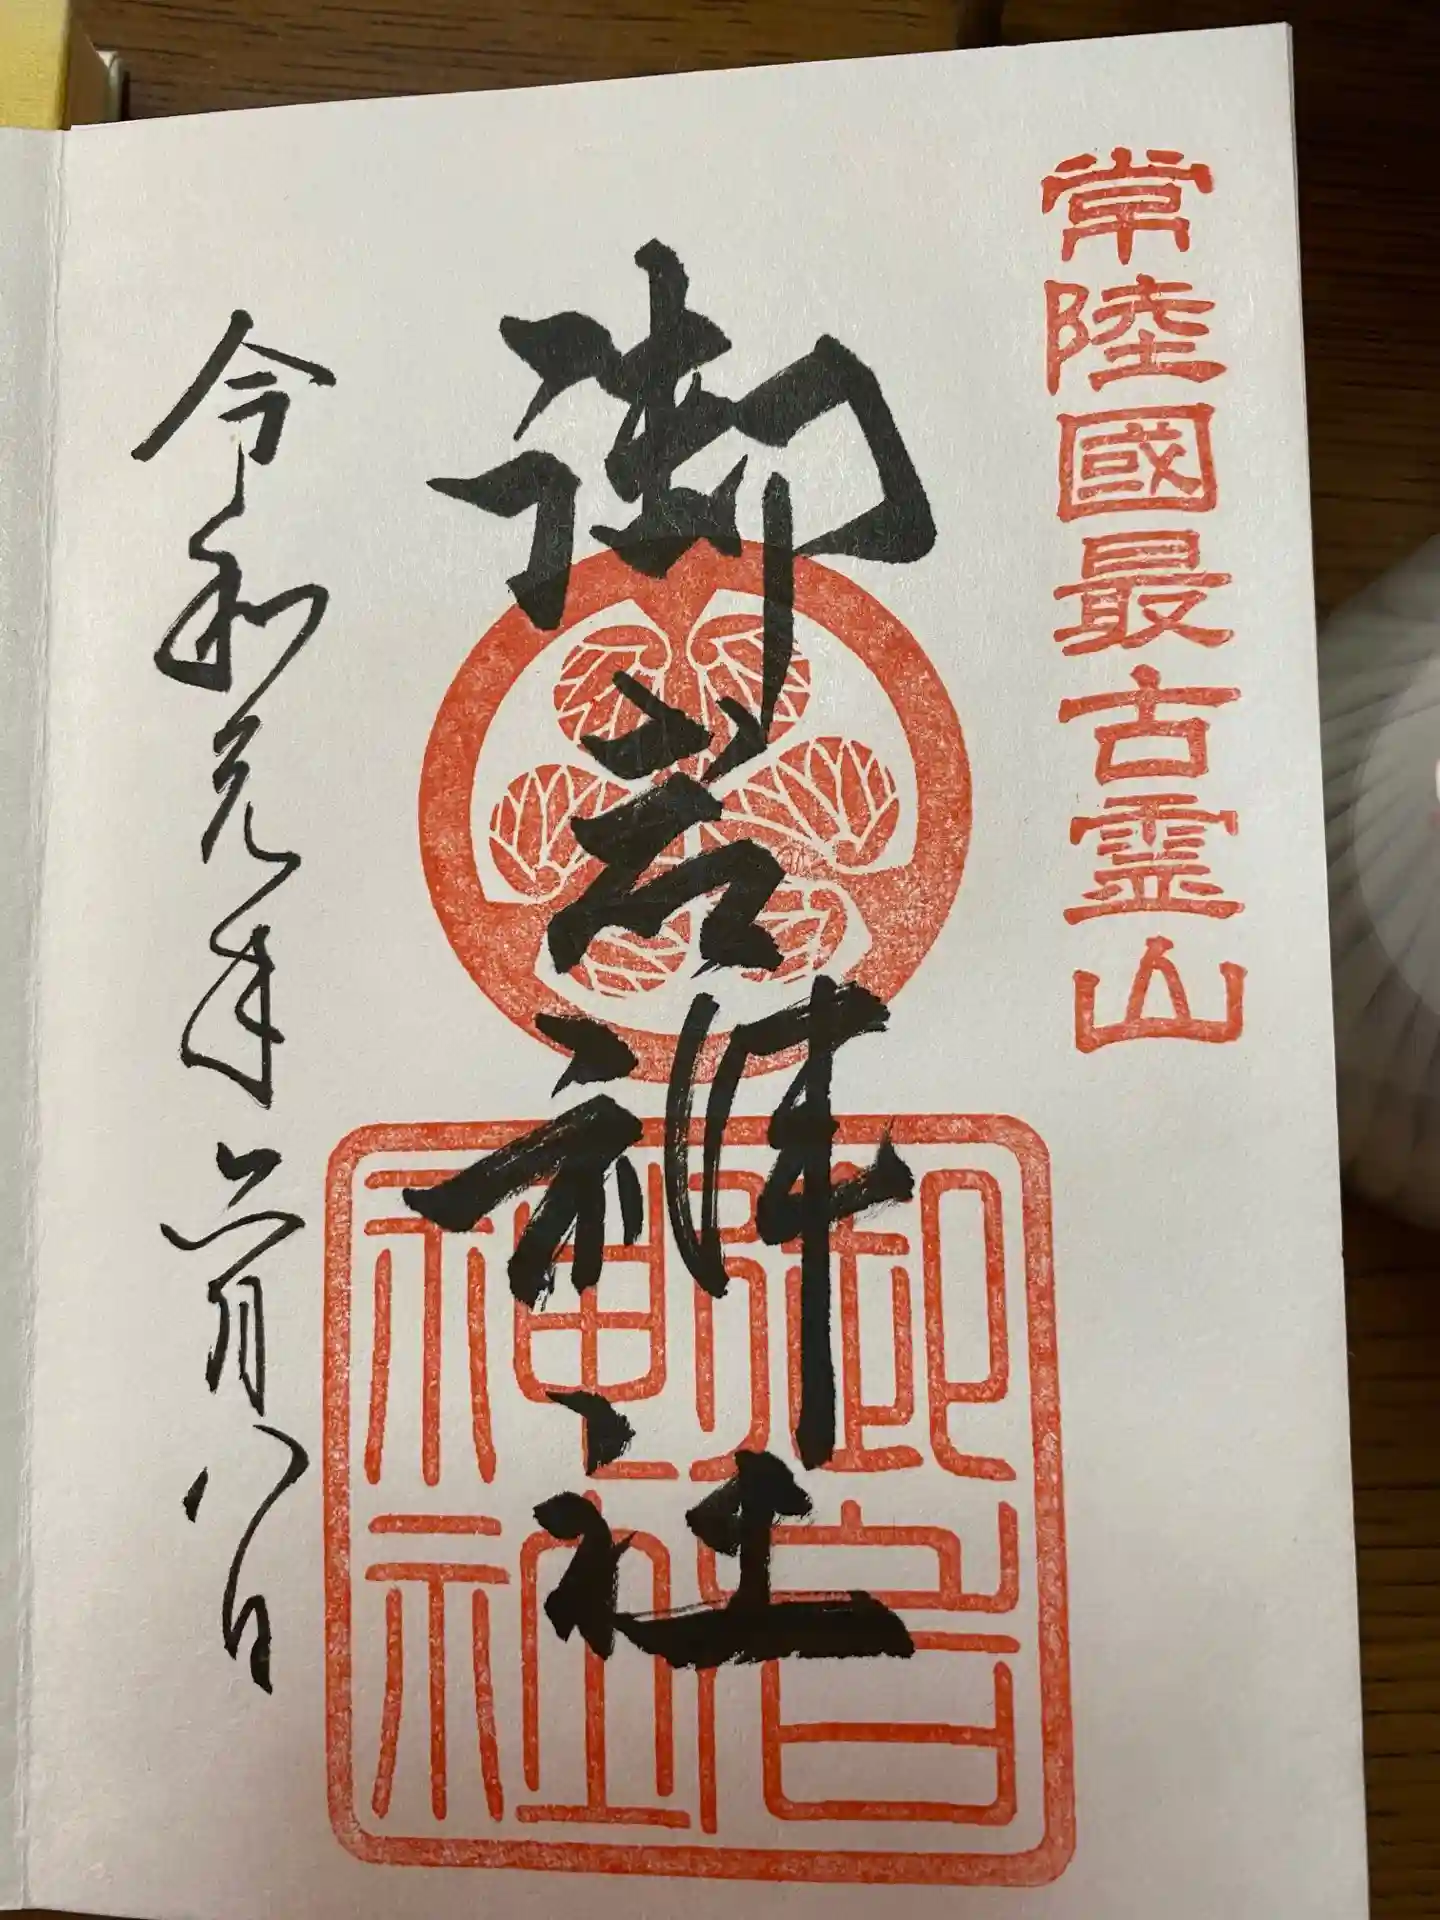 常陸國最古霊山
御岩神社
御岩
神社
令和元年六月八日